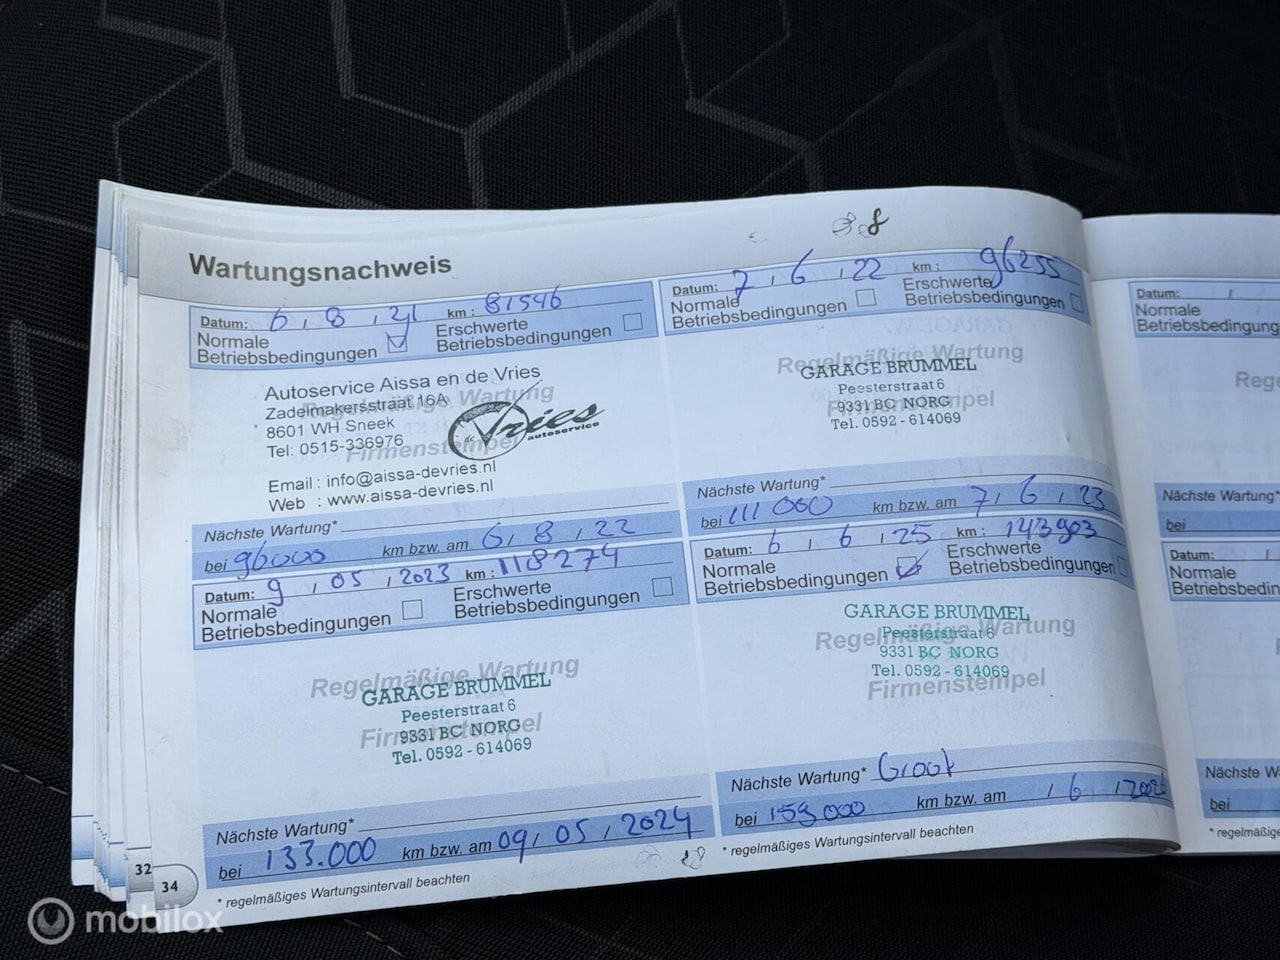 Wartungsnachweis
Datum: 6 , 8 , 21 km : 81546
Normale
Betriebsbedingungen
Erschwerte
Betriebsbedingungen
Autoservice Aissa en de Vries
Zadelmakersstraat 16A
8601 WH Sneek
Tel: 0515-336976
Email : info@aissa-devries.nl
Web : www.aissa-devries.nl
de Vries
autoservice
Regelmäßige Wartung
Firmenstempel
Nächste Wartung*
bei 96000 km bzw. am 6 , 8 , 22
Datum: 7 , 6 , 22 km : 96255
Normale
Betriebsbedingungen
Erschwerte
Betriebsbedingungen
Regelmäßige Wartung
GARAGE BRUMMEL
Peesterstraat 6
9331 BC NORG
Tel. 0592 - 614069
Firmenstempel
Nächste Wartung*
bei 111 000 km bzw. am 7 , 6 , 23
Datum: 9 , 05 , 2023 km : 118274
Normale
Betriebsbedingungen
Erschwerte
Betriebsbedingungen
Regelmäßige Wartung
GARAGE BRUMMEL
Peesterstraat 6
9331 BC NORG
Tel. 0592 - 614069
Firmenstempel
Nächste Wartung*
bei 133.000 km bzw. am 09 , 05 , 2024
* regelmäßiges Wartungsintervall beachten
Datum: 6 , 6 , 25 km : 143903
Normale
Betriebsbedingungen
Erschwerte
Betriebsbedingungen
GARAGE BRUMMEL
Peesterstraat 6
9331 BC NORG
Tel. 0592 - 614069
Regelmäßige Wartung
Firmenstempel
Nächste Wartung* Groot
bei km bzw. am / 6 /
* regelmäßiges Wartungsintervall beachten
32
34
Datum: /
Normale
Betriebsbedingung
Rege
Nächste Wartung*
bei
Datum: /
Normale
Betriebsbedingun
Nächste W
bei
* regelmäßig
mobilox